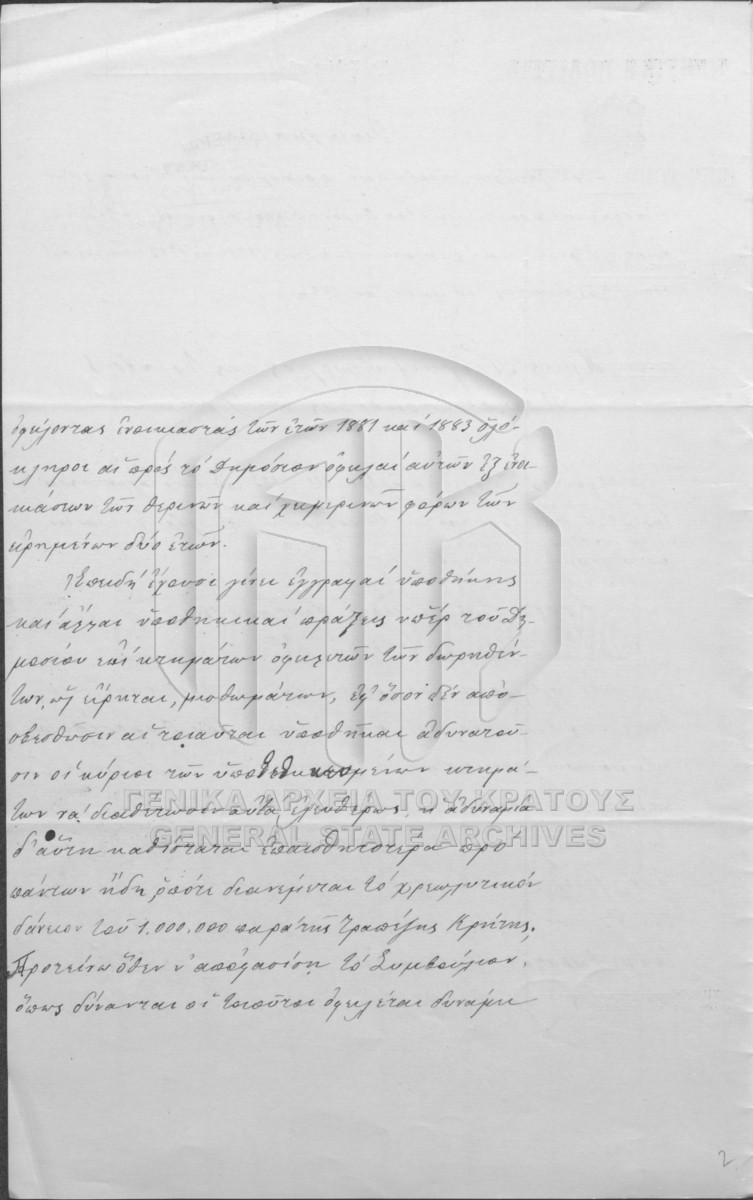 ὀφείλοντας ἐνοικιαστάς τῶν ἐτῶν 1881 καί 1883 ὁλό-
κληροι αἱ πρός τό Δημόσιον ὀφειλαί αὐτῶν ἐξ ἐνοι-
κιάσεων τῶν θερινῶν καί χειμερινῶν φόρων τῶν
εἰρημένων δύο ἐτῶν.
Ἐπειδή ἔχουσι γίνει ἐγγραφαί ὑποθήκης
καί ἄλλαι ὑποθηκικαί πράξεις ὑπέρ τοῦ Δη-
μοσίου ἐπί κτημάτων ὀφειλετῶν τῶν δωρηθέν-
των, ὡς εἴρηται, μισθωμάτων, ἐφ' ὅσον δέν ἀπο-
σβεσθῶσιν αἱ τοιαῦται ὑποθῆκαι ἀδυνατοῦ-
σιν οἱ κύριοι τῶν κτημά-
των νά διαθέτωσιν αὐτά ἐλευθέρως, ἡ ἀδυναμία
δ' αὕτη καθίσταται ἐπαισθητοτέρα πρό
πάντων ἤδη, ὁπότε διανέμεται τό χρεωλυτικόν
δάνειον τοῦ 1.000.000 παρά τῆς Τραπέζης Κρήτης.
Προτείνω ὅθεν ν' ἀποφασίσῃ τό Συμβούλιον,
ὅπως δύνανται οἱ τοιοῦτοι ὀφειλέται δυνάμει
2
ΓΕΝΙΚΑ ΑΡΧΕΙΑ ΤΟΥ ΚΡΑΤΟΥΣ
GENERAL STATE ARCHIVES